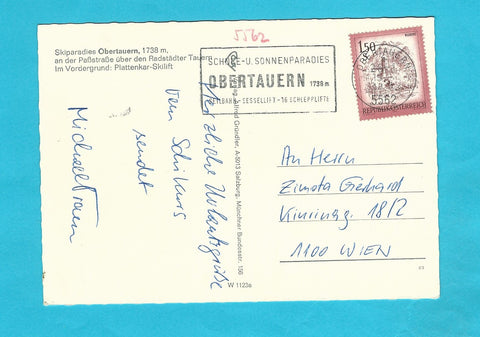 Skiparadies Obertauern, 1738 m,
an der Paßstraße über den Radstädter Tauern
Im Vordergrund: Plattenkar-Skilift
5562
SCHNEE-U. SONNENPARADIES
OBERTAUERN 1738 m
SEILBAHN-SESSELLIFT-16 SCHLEPPLIFTE
1.50
OBERTAUERN
5562
REPUBLIK ÖSTERREICH
Herzliche Urlaubsgrüße
vom Schikurs
sendet
Michael
Gründler, A-5013 Salzburg, Münchner Bundesstr. 156
W 1123e
An Herrn
Zimota Gerhard
18/2
1100 WIEN